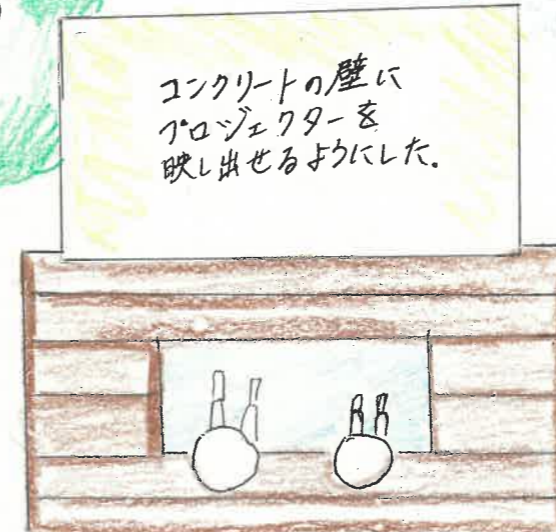 コンクリートの壁に
プロジェクターを
映し出せるようにした.